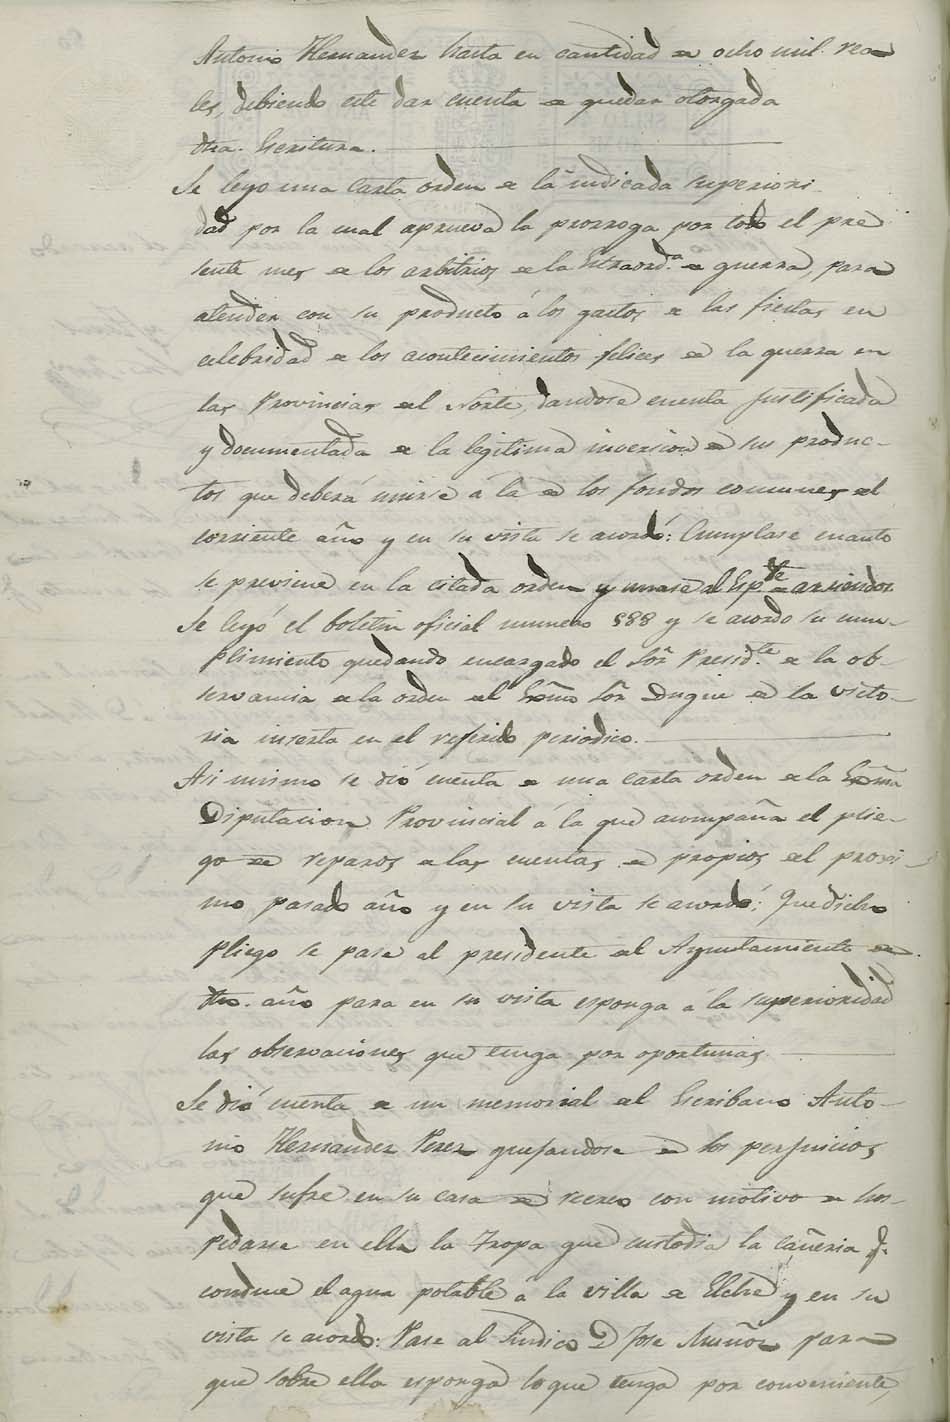 Antonio Hernandez hasta en cantidad de ocho mil rea-
les, debiendo este dar cuenta de quedar otorgada
dha. Escritura.
Se leyo una Carta orden de la indicada superiori-
dad por la cual aprueva la prorroga por todo el pre
sente mes de los arbitrios de la Extraord.ª de guerra, para
atender con su producto á los gastos de las fiestas en
celebridad de los acontecimientos felices de la guerra en
las Provincias del Norte, dandose cuenta justificada
y documentada de la legitima inversion de sus produc-
tos que deberá unirse á la de los fondos comunes del
corriente año y en su vista se acordó: Cumplase cuanto
se previene en la citada orden y unase al Esp.te de arriendos.
Se leyó el boletin oficial numero 888 y se acordo su cum-
plimiento quedando encargado el Sõr Presid.te de la ob-
servancia de la orden del Exmõ Sõr Duque de la victo-
ria inserta en el referido periodico.
Asi mismo se dió cuenta de una carta orden de la Exmã
Diputacion Provincial á la que acompaña el plie-
go de reparos de las cuentas de propios del proxi-
mo pasado año y en su vista se acordó: Que dicho
pliego se pase al presidente del Ayuntamiento de
dho. año para en su vista esponga á la superioridad
las observaciones que tenga por oportunas.
Se dió cuenta de un memorial del Escribano Anto-
nio Hernandez Perez quejandose de los perjuicios
que sufre en su casa de recreo con motivo de hos-
pedarse en ella la Tropa que custodia la cañeria q.
conduce el agua potable á la villa de Elche y en su
vista se acordó: Pase al Sindico D Jose Muñoz para
que sobre ella esponga lo que tenga por conveniente